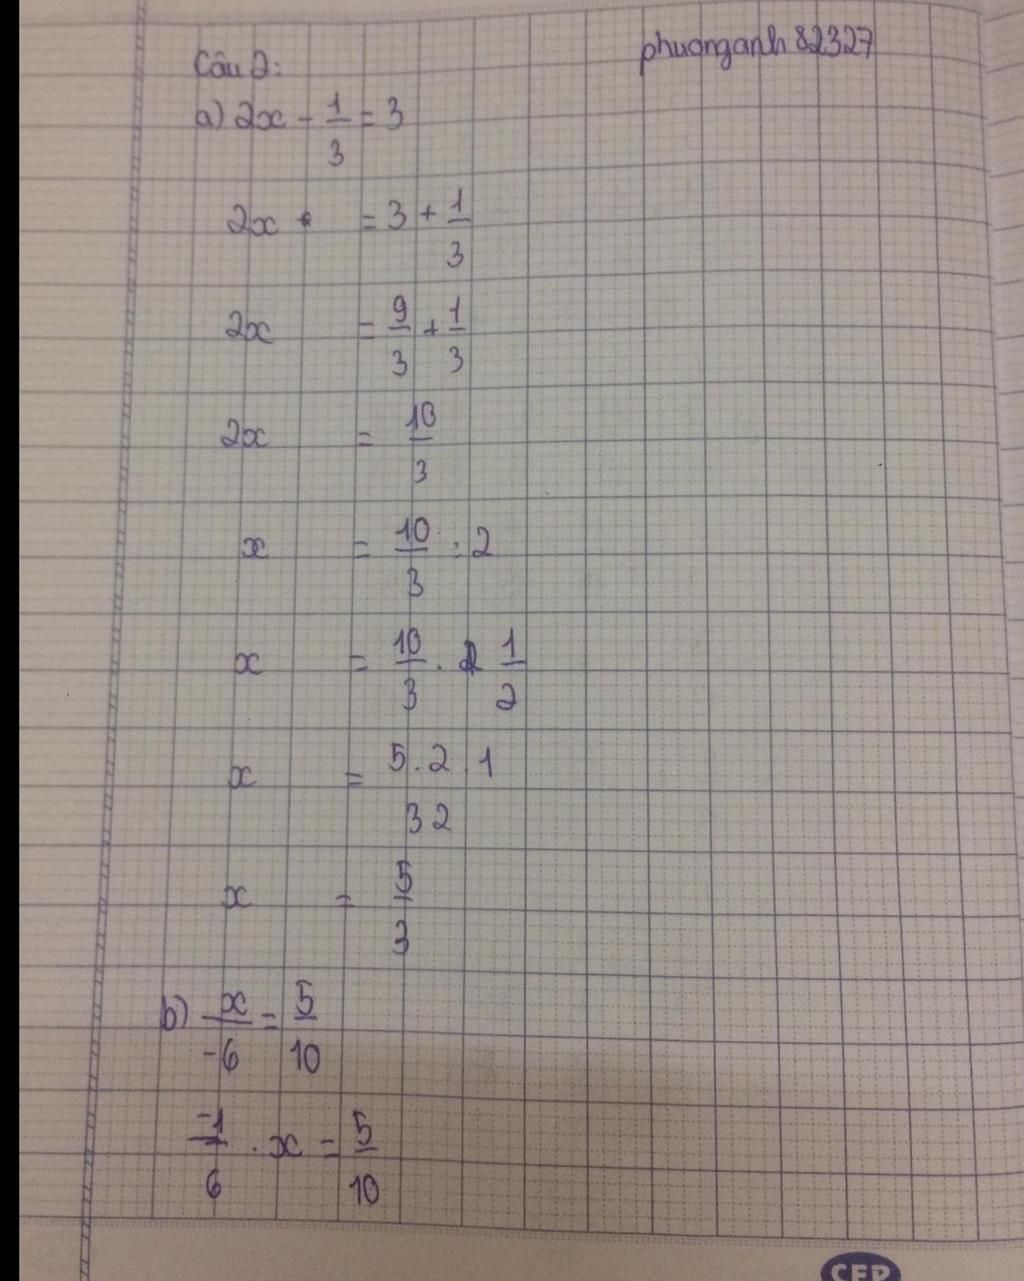 phuonganh 82327
Câu 2:
a) 2x - 1/3 = 3
2x = 3 + 1/3
2x = 9/3 + 1/3
2x = 10/3
x = 10/3 : 2
x = 10/3 . 1/2
x = 5.2.1/3 2
x = 5/3
b) x/-6 = 5/10
-1/6 . x = 5/10
CEP